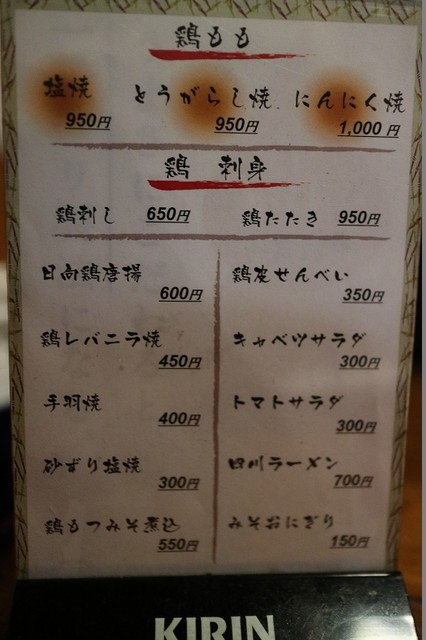 鶏もも
塩焼 とうがらし焼 にんにく焼
950円 950円 1,000円
鶏 刺身
鶏刺し 650円 鶏たたき 950円
日向鶏唐揚
600円
鶏皮せんべい
350円
鶏レバニラ焼
450円
キャベツサラダ
300円
手羽焼
400円
トマトサラダ
300円
砂ずり塩焼
300円
四川ラーメン
700円
鶏もつみそ煮込
550円
みそおにぎり
150円
KIRIN